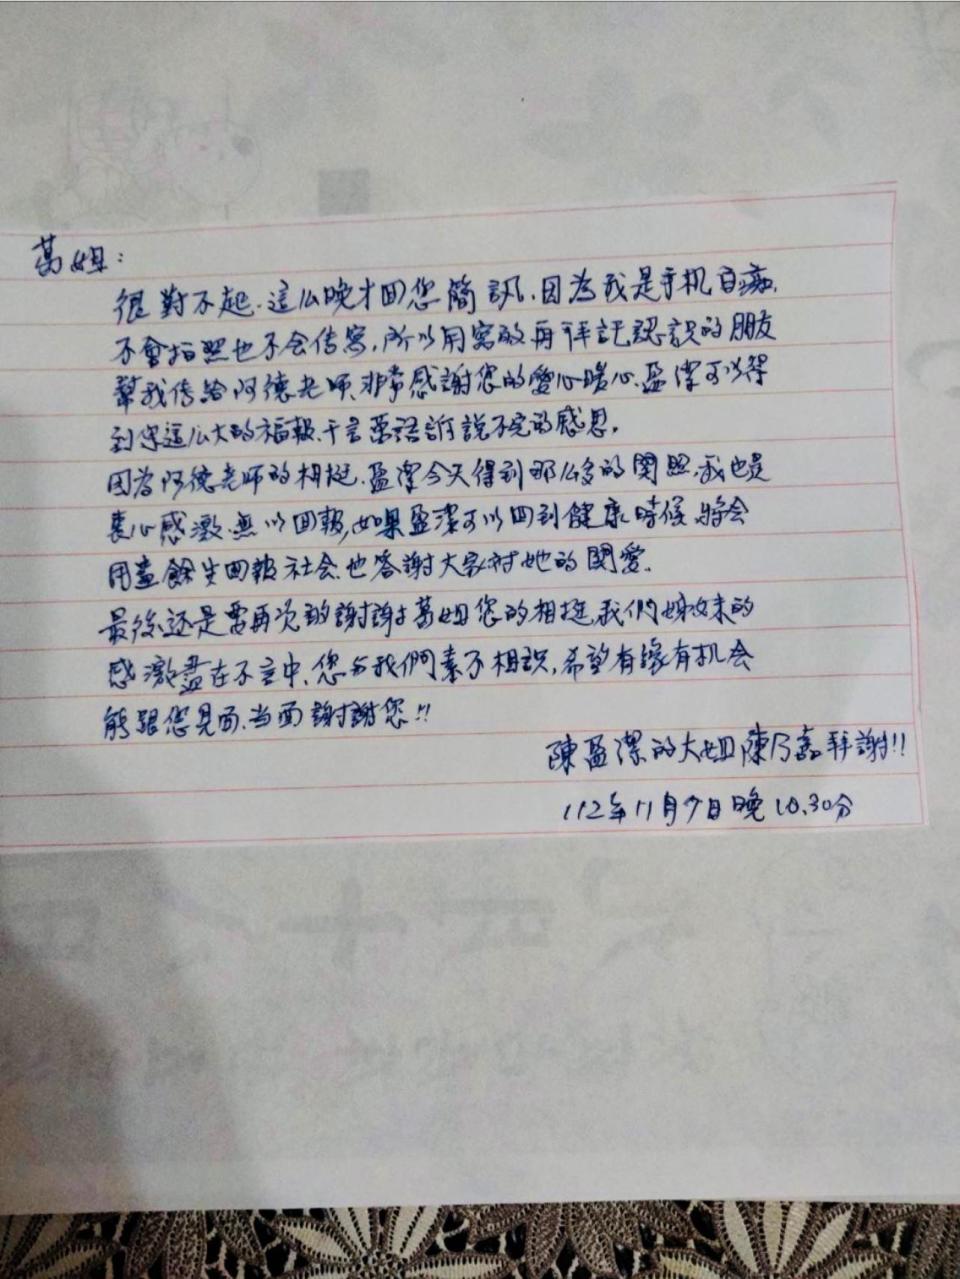 葛姐：
很對不起，這么晚才回您簡訊，因為我是手机白痴，
不會拍照也不会传寫，所以用寫的再拜託認識的朋友
幫我传給阿德老师，非常感謝您的愛心暖心，盈潔可以得
到您這么大的福報，千言萬語訴說不完的感恩。
因為阿德老师的相挺，盈潔今天得到那么多的関照，我也是
衷心感激，無以回報，如果盈潔可以回到健康時候，將会
用盡餘生回報社会，也答謝大家对她的関愛。
最後还是要再次的謝謝葛姐您的相挺，我們姊妹的
感激盡在不言中，您与我們素不相識，希望有緣有机会
能跟您見面，当面謝謝您!!
陳盈潔的大姐陳乃嘉拜謝!!
112年11月7日晚10.30分